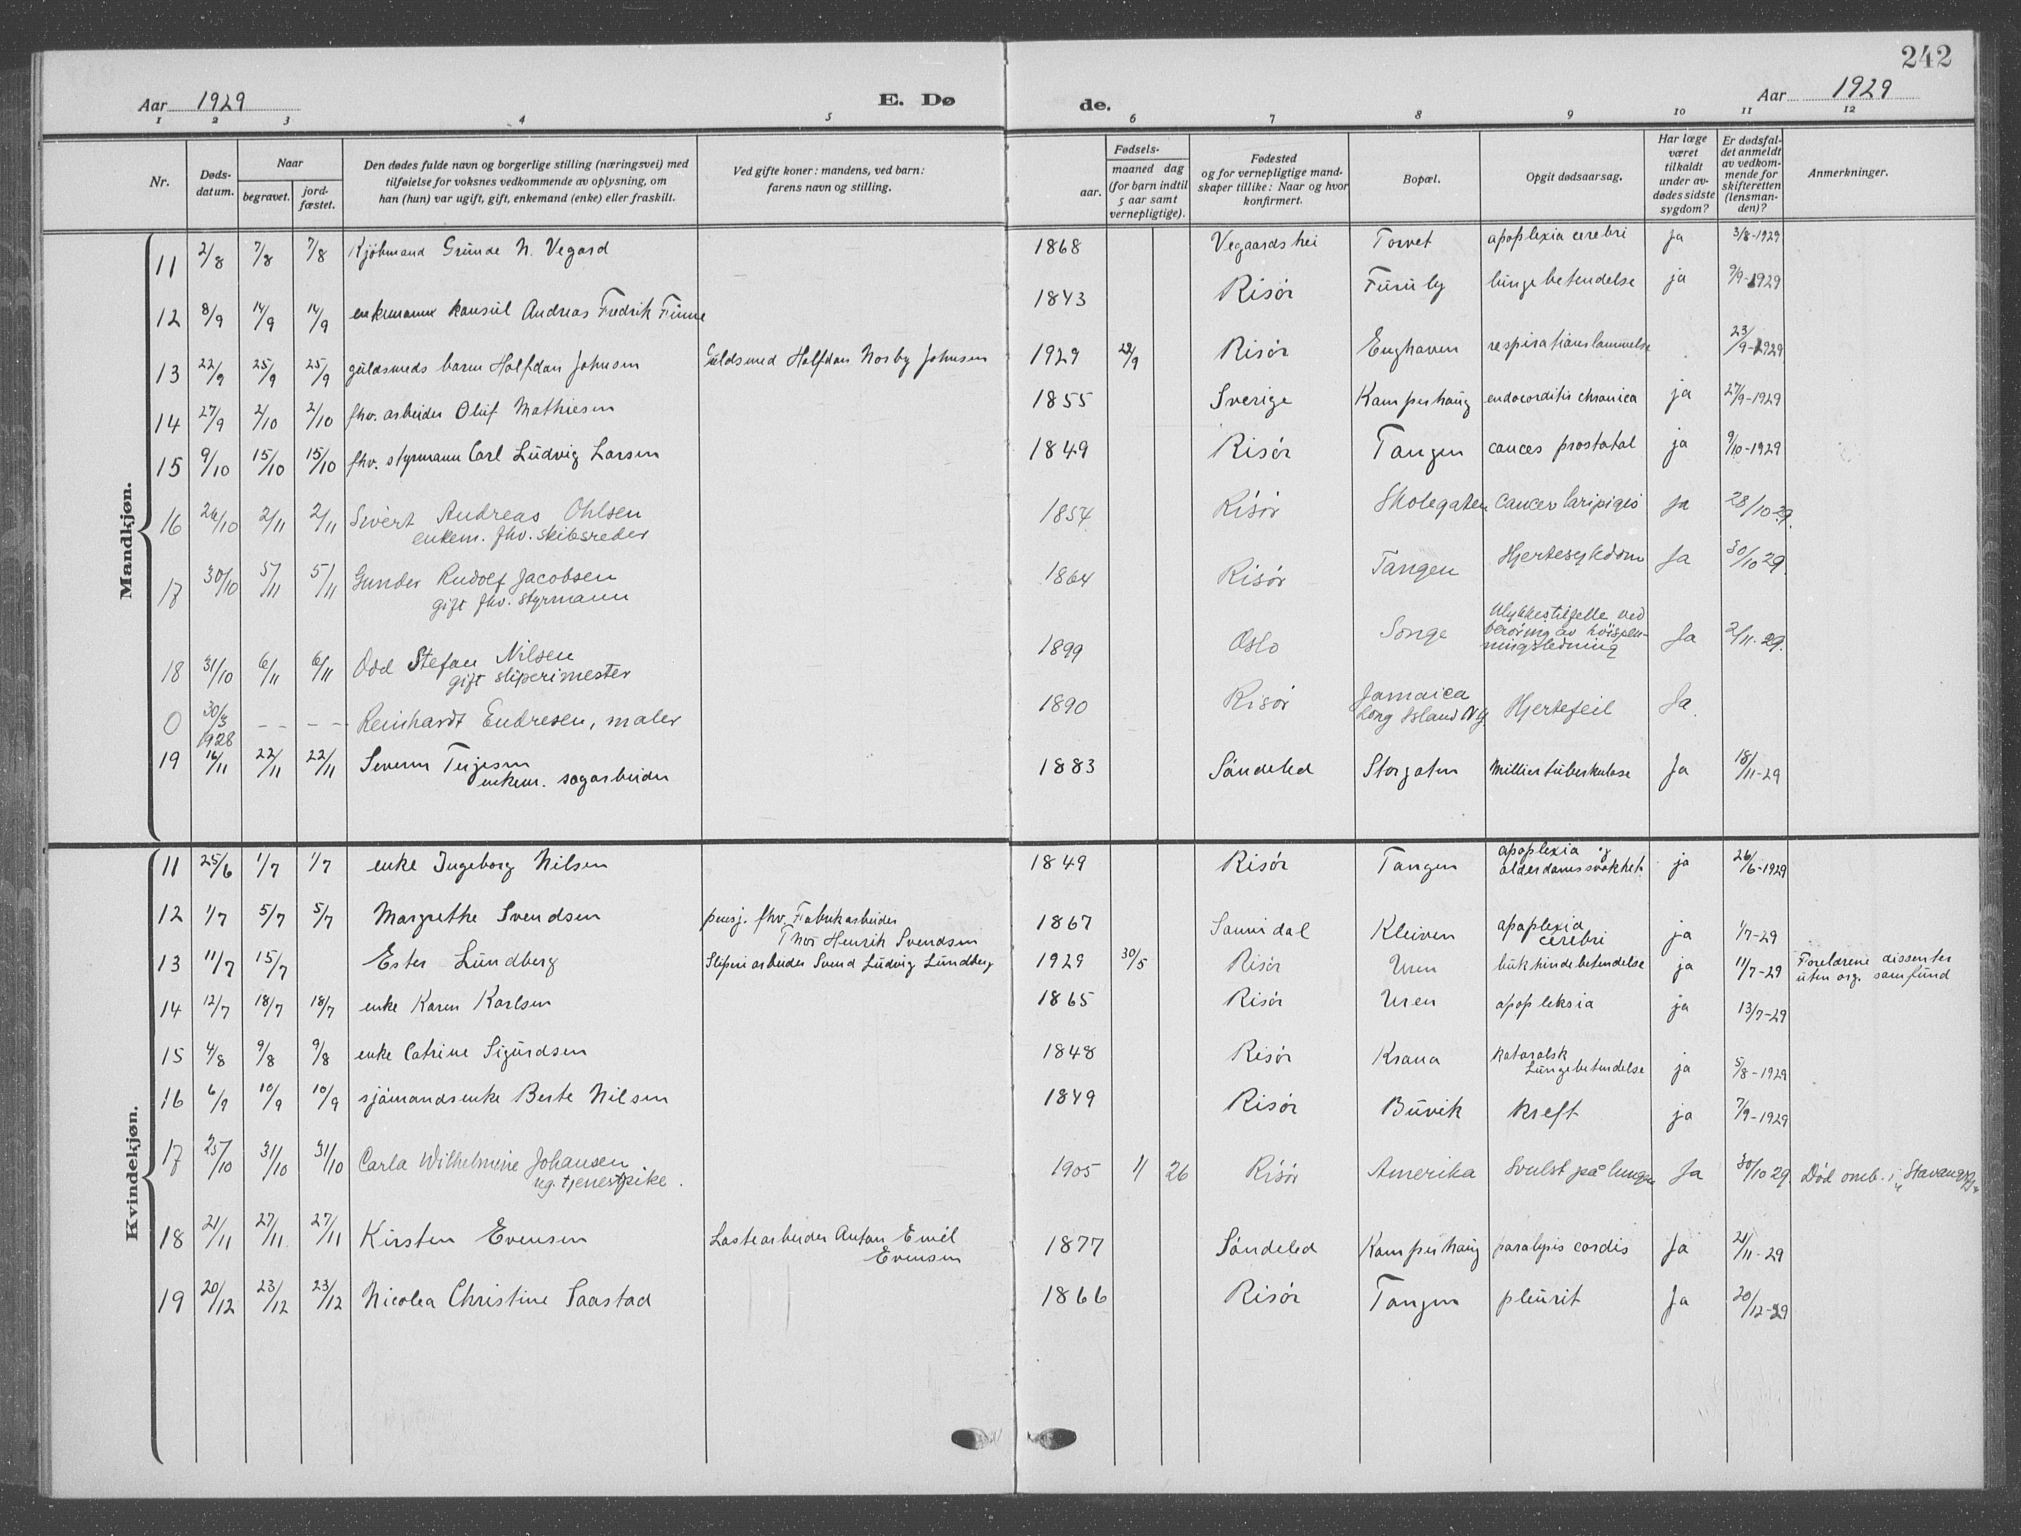 242
Aar 1929 E. Dø de. Aar 1929
1 2 3 4 5 6 7 8 9 10 11 12
Nr.
Døds-datum.
Naar
begravet.
jord-fæstet.
Den dødes fulde navn og borgerlige stilling (næringsvei) med
tilføielse for voksnes vedkommende av oplysning, om
han (hun) var ugift, gift, enkemand (enke) eller fraskilt.
Ved gifte koner: mandens, ved barn:
farens navn og stilling.
Fødsels-
aar.
maaned dag
(for barn indtil
5 aar samt
vernepligtige).
Fødested
og for vernepligtige mand-
skaper tillike: Naar og hvor
konfirmert.
Bopæl.
Opgit dødsaarsag.
Har læge
været
tilkaldt
under av-
dødes sidste
sygdom?
Er dødsfal-
det anmeldt
av vedkom-
mende for
skifteretten
(lensman-
den)?
Anmerkninger.
Mandkjøn.
11 2/8 7/8 7/8 Kjøbmand Grunde N. Vegard 1868 Vegaardshei Torvet apoplexia cerebri Ja 3/8-1929
12 8/9 14/9 14/9 enkemann konsul Andreas Fredrik Finne 1843 Risør Furuly lungebetendelse ja 9/9-1929
13 22/9 25/9 25/9 guldsmeds barn Halfdan Johnsen Guldsmed Halfdan Norby Johnsen 1929 22/9 Risør Enghaven respirationslammelse 23/9-1929
14 27/9 2/10 2/10 fhv. arbeider Oluf Mathiesen 1855 Sverige Kamperhaug endocorditis chronica ja 27/9-1929
15 9/10 15/10 15/10 fhv. styrmann Carl Ludvig Larsen 1849 Risør Tangen cances prostatal ja 9/10-1929
16 26/10 2/11 2/11 Sivert Andreas Ohlsen 1854 Risør Skolegaten cancer laripigis Ja 28/10 29.
enkem. fhv. skibsreder
17 30/10 5/11 5/11 Gunder Rudolf Jacobsen 1864 Risør Tangen Hjertesykdom Ja 30/10 29.
gift fhv. styrmann
18 31/10 6/11 6/11 Odd Stefan Nilsen 1899 Oslo Songe Ulykkestilfelle ved
berøring av høispen-
ningsledning Ja 2/11-29.
gift sliperimester
0 30/3 1928 - - - - Reinhardt Endresen, maler 1890 Risør Jamaica
Long Island NY Hjertefeil Ja.
19 16/11 22/11 22/11 Severin Terjesen 1883 Søndeled Storgaten Millier tuberkulose Ja 18/11-29
enkem. sagarbeider
Kvindekjøn.
11 25/6 1/7 1/7 enke Ingeborg Nilsen 1849 Risør Tangen apoplexia og
alderdomssvakhet ja 26/6-1929
12 1/7 5/7 5/7 Margrethe Svendsen pensj. fhv. Fabrikarbeider
Thor Henrik Svendsen 1867 Sannidal Kleiven apoplexia
cerebri ja 1/7-29
13 11/7 15/7 Ester Lundberg Sliperiarbeider Svend Ludvig Lundberg 1929 30/5 Risør Uren bukhindebetendelse ja 11/7-29 Foreldrene dissenter
uten org. samfund
14 12/7 18/7 18/7 enke Karen Karlsen 1865 Risør Uren apopleksia ja 13/7-29
15 4/8 9/8 9/8 enke Catrine Sigurdsen 1848 Risør Krana kataralsk
Lungebetendelse ja 5/8-1929
16 6/9 10/9 10/9 sjømandsenke Berte Nilsen 1849 Risør Buvik kreft ja 7/9-1929
17 25/10 31/10 31/10 Carla Wilhelmine Johansen 1905 11 26 Risør Amerika Svulst på lungen Ja 30/10 29 Død omb. i "Stavangfj."
ug. tjenestpike.
18 21/11 27/11 27/11 Kirsten Evensen Lastearbeider Anton Emil
Evensen 1877 Søndeled Kamperhaug paralysis cordis Ja 21/11-29
19 20/12 23/12 23/12 Nicolea Christine Saastad 1866 Risør Tangen pleurit Ja 20/12-29